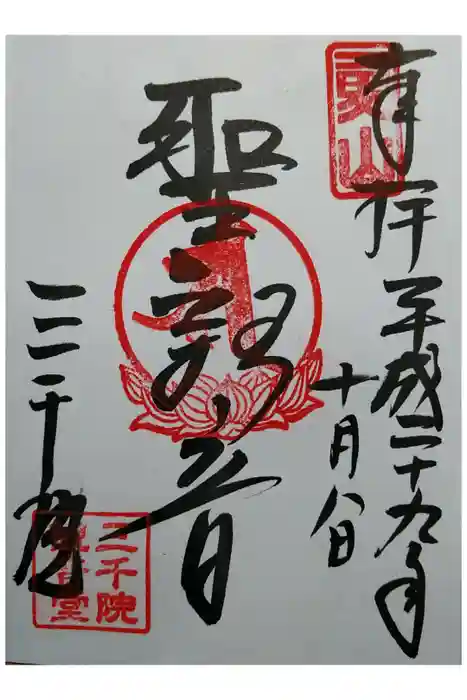 奉拝 平成二十九年
十月八日
聖観音
三千院
魚山
三千院
観音堂